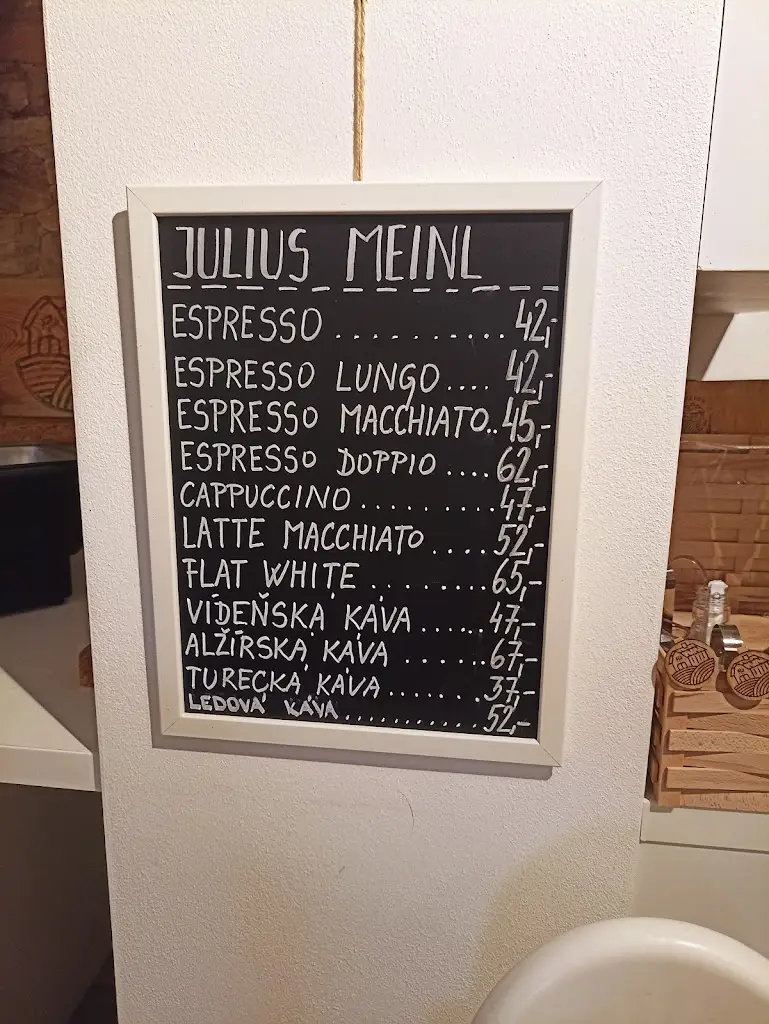 JULIUS MEINL
ESPRESSO .......... 42,-
ESPRESSO LUNGO .... 42,-
ESPRESSO MACCHIATO.. 45,-
ESPRESSO DOPPIO .... 62,-
CAPPUCCINO .......... 47,-
LATTE MACCHIATO .... 52,-
FLAT WHITE ........ 65,-
VÍDEŇSKÁ KÁVA ..... 47,-
ALŽÍRSKÁ KÁVA ...... 67,-
TURECKÁ KÁVA ....... 37,-
LEDOVÁ KÁVA ............ 52,-